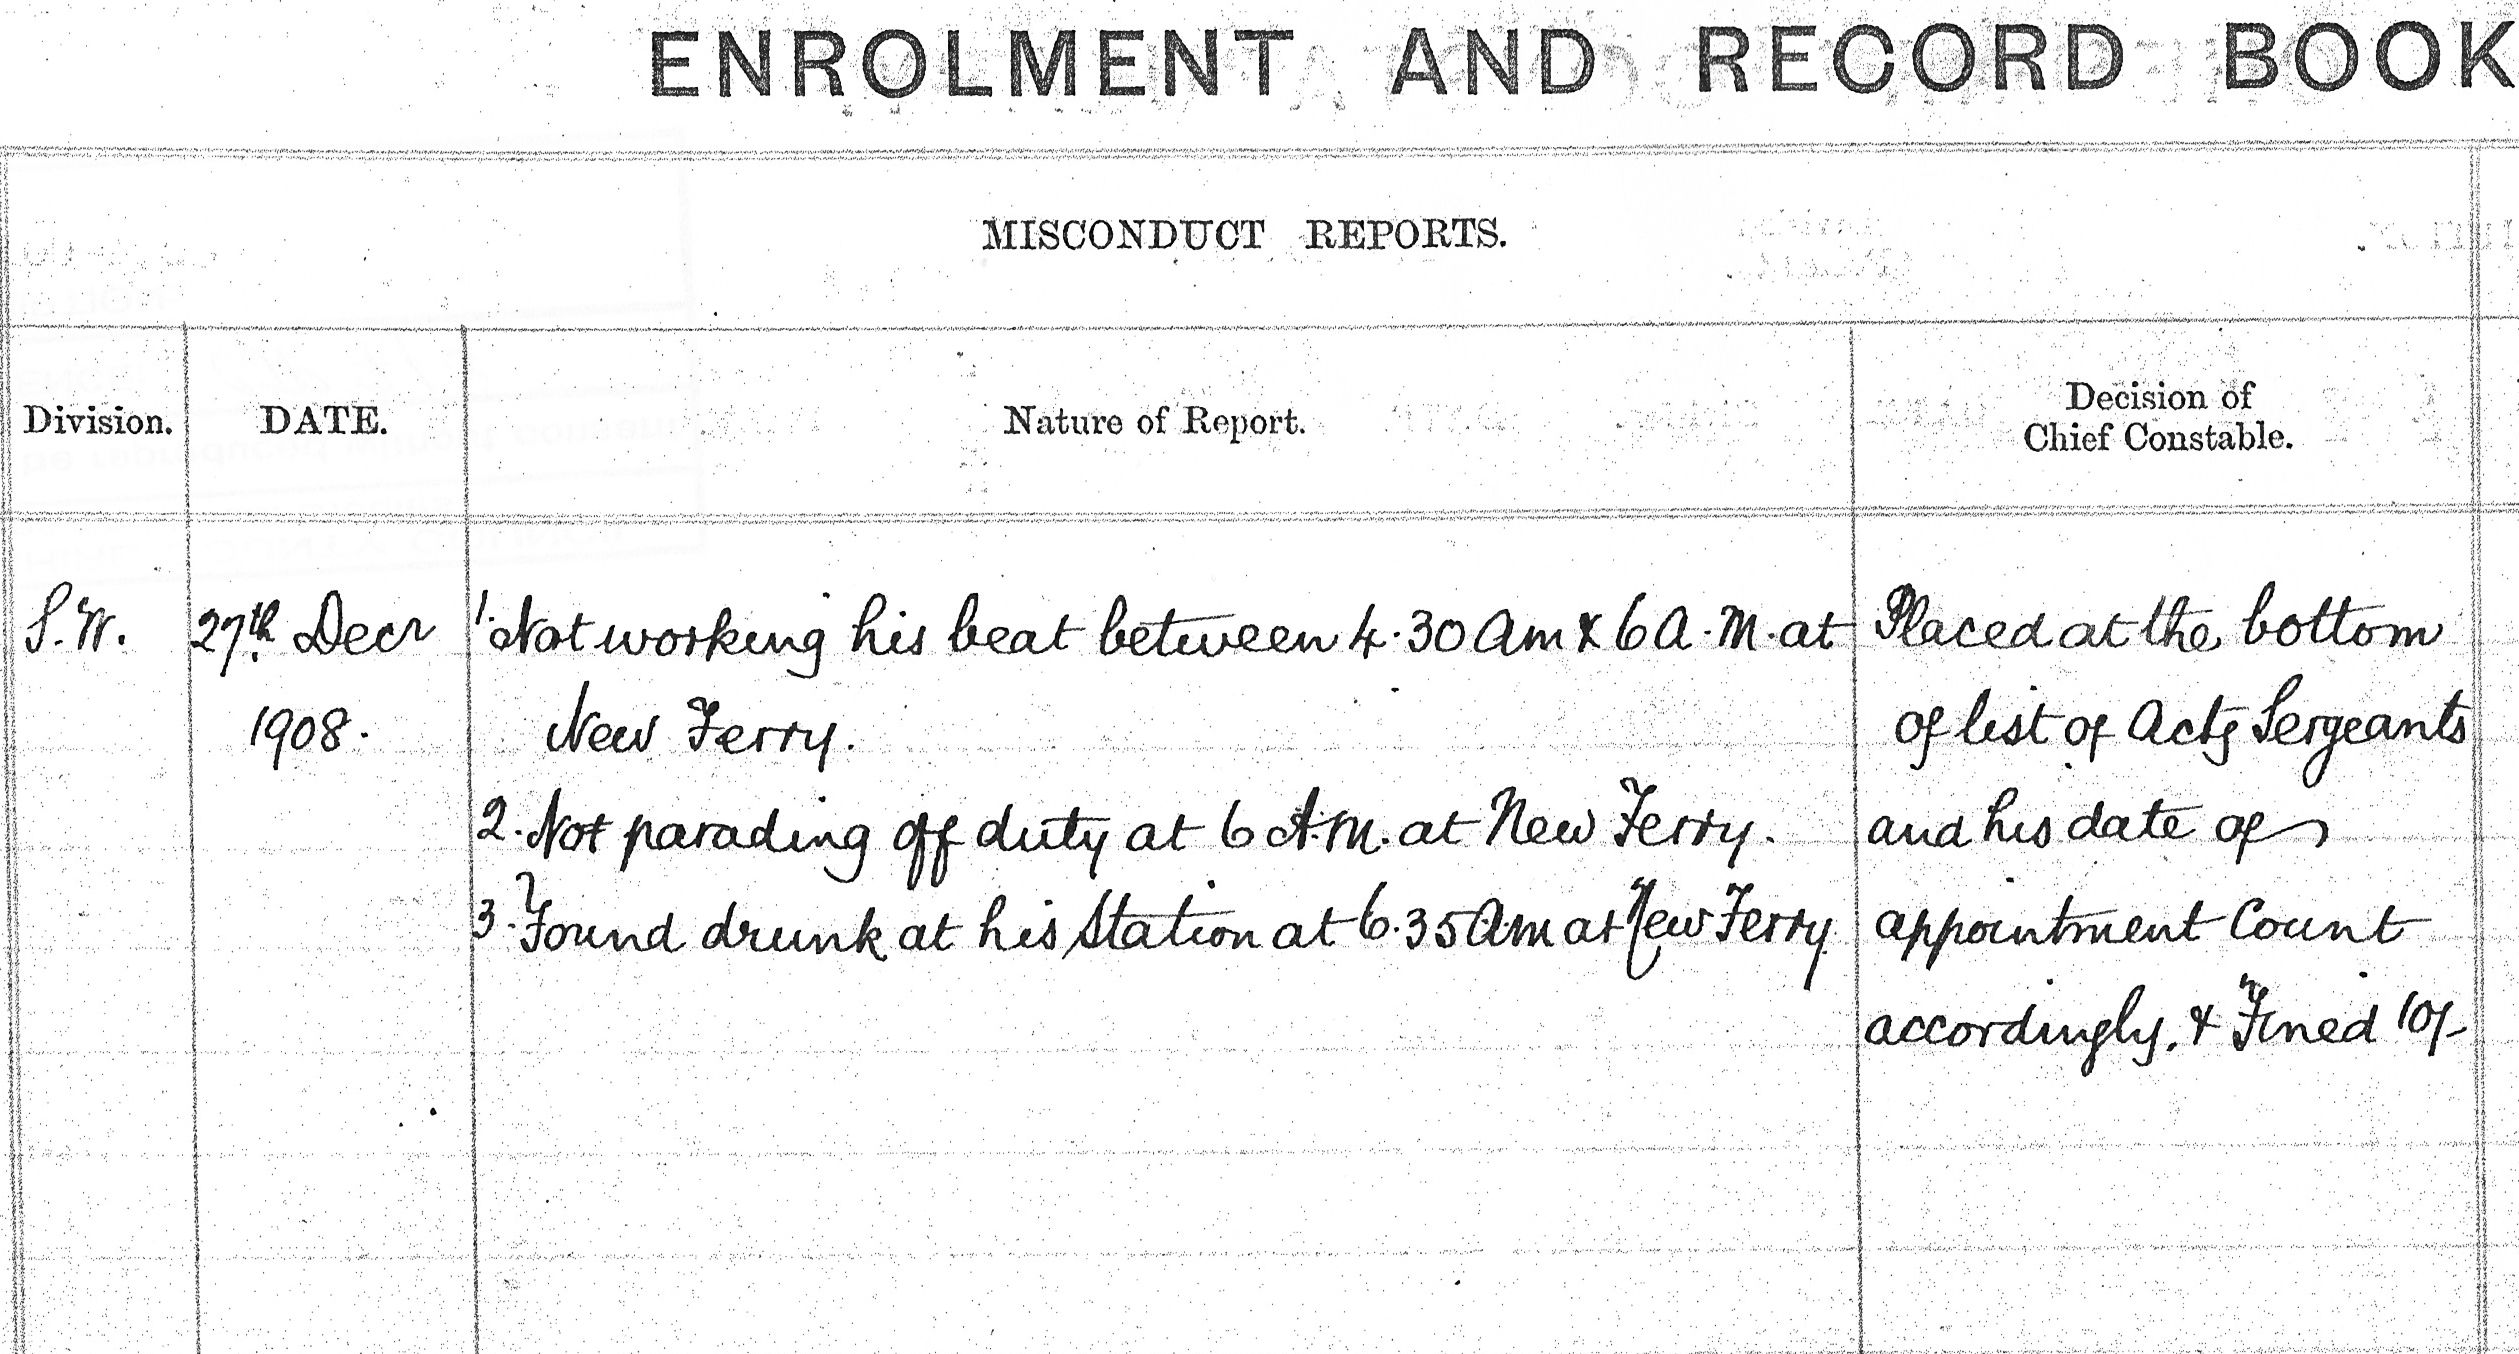 ENROLMENT AND RECORD BOOK
MISCONDUCT REPORTS.
Division. DATE. Nature of Report. Decision of
Chief Constable.
S.W. 27th Decr 1. Not working his beat between 4.30 am & 6 A.M. at Placed at the bottom
1908. New Ferry. of list of Actg Sergeants
2. Not parading off duty at 6 A.M. at New Ferry. and his date of
3. Found drunk at his Station at 6.35 Am at New Ferry appointment Count
accordingly. & Fined 10/-